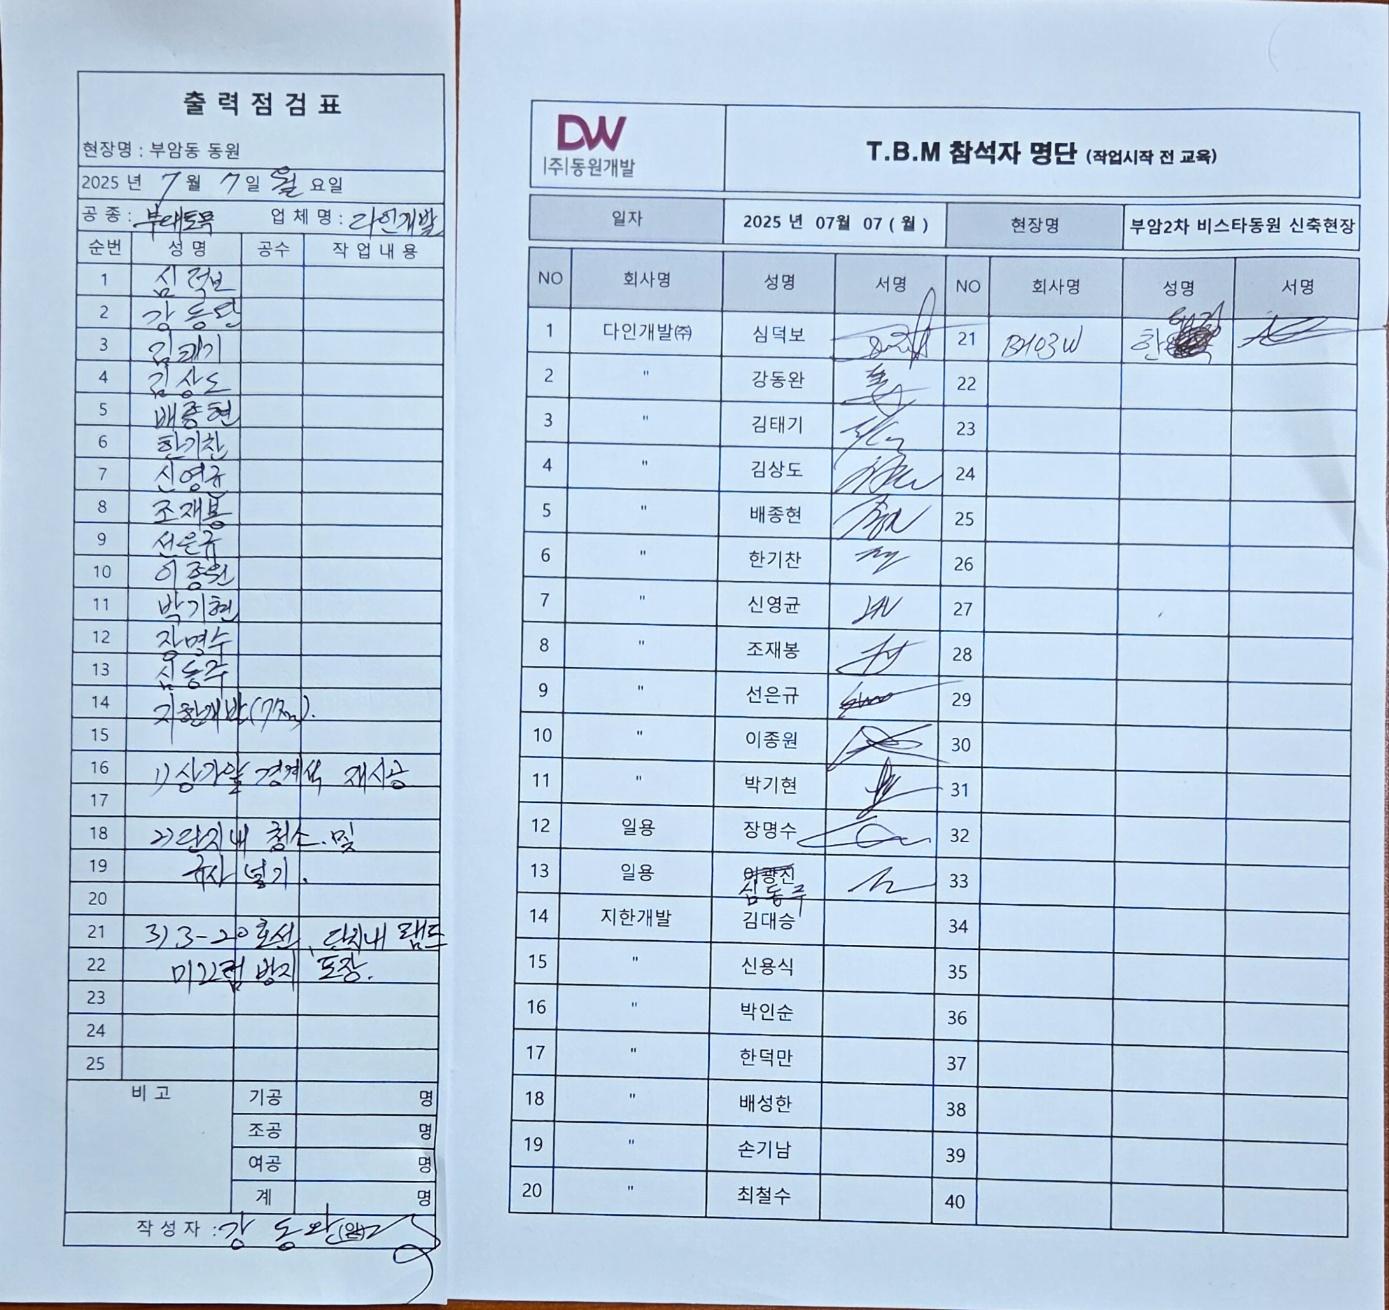 출 력 점 검 표
현장명 : 부암동 동원
2025 년 7 월 7 일 월 요일
공 종 : 부대토목 업 체 명 : 다인개발
순번 성 명 공수 작 업 내 용
1 심덕보
2 강동완
3 김태기
4 김상도
5 배종현
6 한기찬
7 신영균
8 조재봉
9 선은규
10 이종원
11 박기현
12 장명수
13 심동주
14 지한개발(7명).
15
16 1) 상가앞 경계석 재시공
17
18 2) 단지내 청소. 및
19 규사 넣기.
20
21 3) 3-20호선, 단지내 램프
22 미끄럼 방지 포장.
23
24
25
비 고
기공 명
조공 명
여공 명
계 명
작 성 자 : 강 동 완 (인)
DW
(주)동원개발
T.B.M 참석자 명단 (작업시작 전 교육)
일자 2025 년 07월 07 ( 월 ) 현장명 부암2차 비스타동원 신축현장
NO 회사명 성명 서명 NO 회사명 성명 서명
1 다인개발㈜ 심덕보 21 한
2 " 강동완 22
3 " 김태기 23
4 " 김상도 24
5 " 배종현 25
6 " 한기찬 26
7 " 신영균 27
8 " 조재봉 28
9 " 선은규 29
10 " 이종원 30
11 " 박기현 31
12 일용 장명수 32
13 일용 심동주 33
14 지한개발 김대승 34
15 " 신용식 35
16 " 박인순 36
17 " 한덕만 37
18 " 배성한 38
19 " 손기남 39
20 " 최철수 40